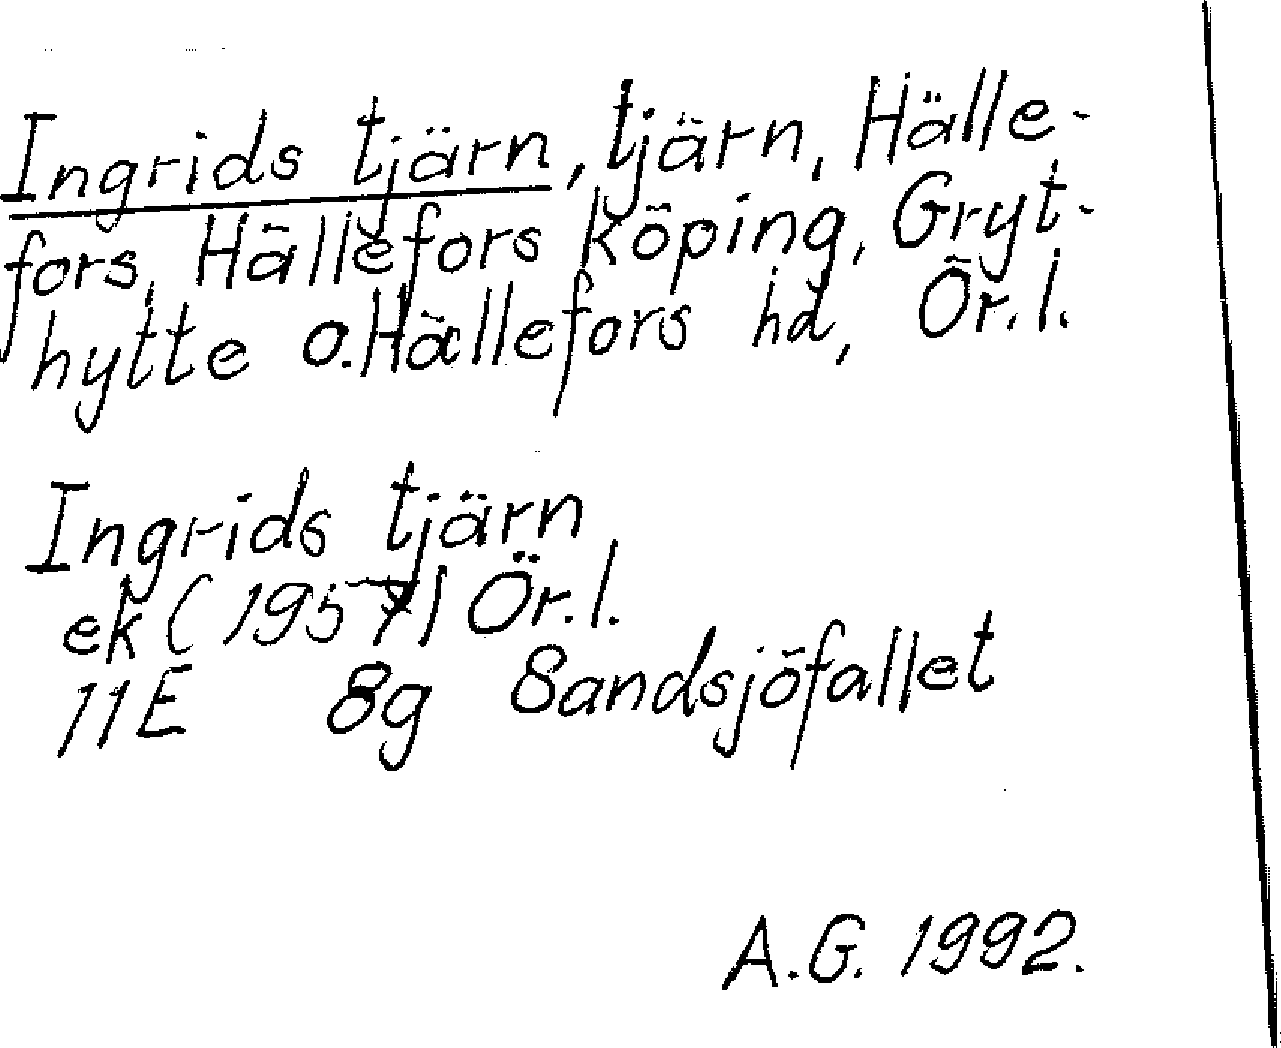 Ingrids tjärn, tjärn, Hälle-
fors, Hällefors köping, Gryt-
hytte o. Hällefors hd, Ör.l.
Ingrids tjärn
ek (1957) Ör.l.
11E 8g Sandsjöfallet
A.G. 1992.